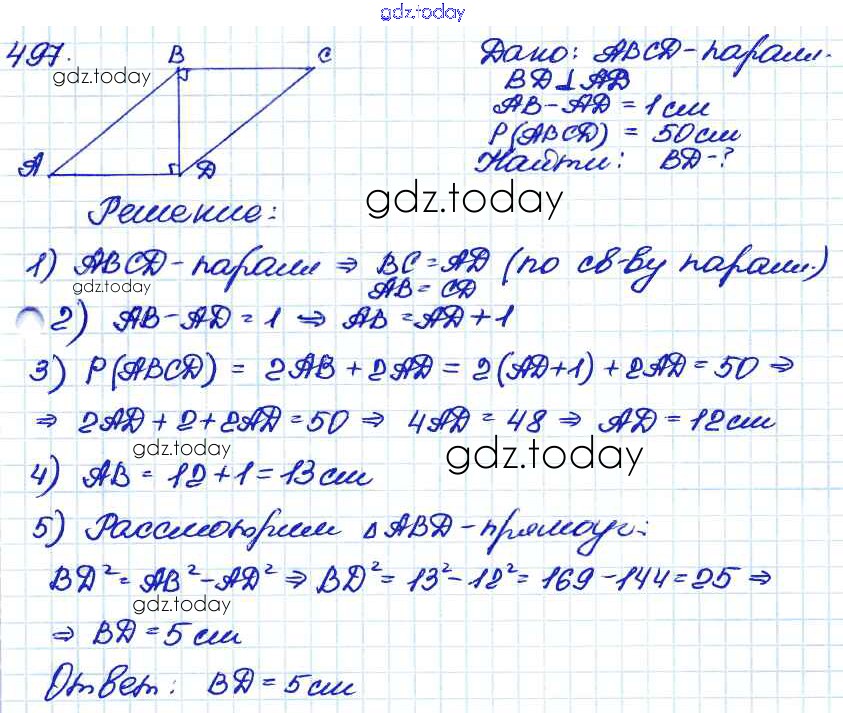 gdz.today
497.
B C
A D
gdz.today
Дано: ABCD-паралл.
BD ⊥ AD
AB-AD = 1 см
P(ABCD) = 50 см
Найти: BD-?
Решение:
gdz.today
1) ABCD-паралл ⇒ BC = AD (по св-ву паралл.)
AB = CD
gdz.today
2) AB-AD = 1 ⇒ AB = AD + 1
3) P(ABCD) = 2AB + 2AD = 2(AD+1) + 2AD = 50 ⇒
⇒ 2AD + 2 + 2AD = 50 ⇒ 4AD = 48 ⇒ AD = 12 см
gdz.today
gdz.today
4) AB = 12 + 1 = 13 см
5) Рассмотрим △ABD-прямоуг.:
BD² = AB² - AD² ⇒ BD² = 13² - 12² = 169 - 144 = 25 ⇒
gdz.today
⇒ BD = 5 см
Ответ: BD = 5 см